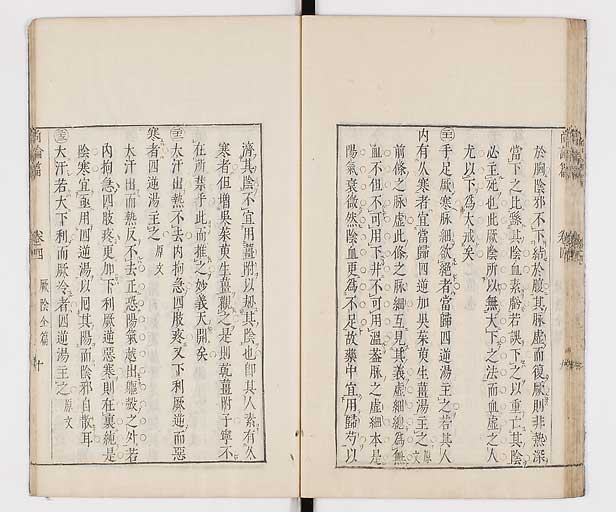 於胸陰邪不下結於腹其脉虛而復厥則非熱深
當下之比繇其陰血素虧若誤下之以重亡其陰
必主死也此厥陰所以無大下之法而血虛之人
尤以下爲大戒矣
手足厥寒脉細欲絕者當歸四逆湯主之若其人
内有久寒者宜當歸四逆加吳茱萸生薑湯主之原文
前條之脉虛此條之脉細互見其義虛細總爲無
血不但不可用下并不可用溫蓋脉之虛細本是
陽氣衰微然陰血更爲不足故藥中宜用歸芍以
濟其陰不宜用薑附以刼其陰也即其人素有久
寒者但增吳茱萸生薑觀之是則乾薑附子寧不
在所禁乎此而推之妙義天開矣
大汗出熱不去内拘急四肢疼又下利厥逆而惡
寒者四逆湯主之原文
大汗出而熱反不去正恐陽氣越出軀殼之外若
内拘急四肢疼更加下利厥逆惡寒則在裏純是
陰寒宜亟用四逆湯以囘其陽而陰邪自散耳
大汗若大下利而厥冷者四逆湯主之原文
尚論篇 卷四 厥陰全篇 十